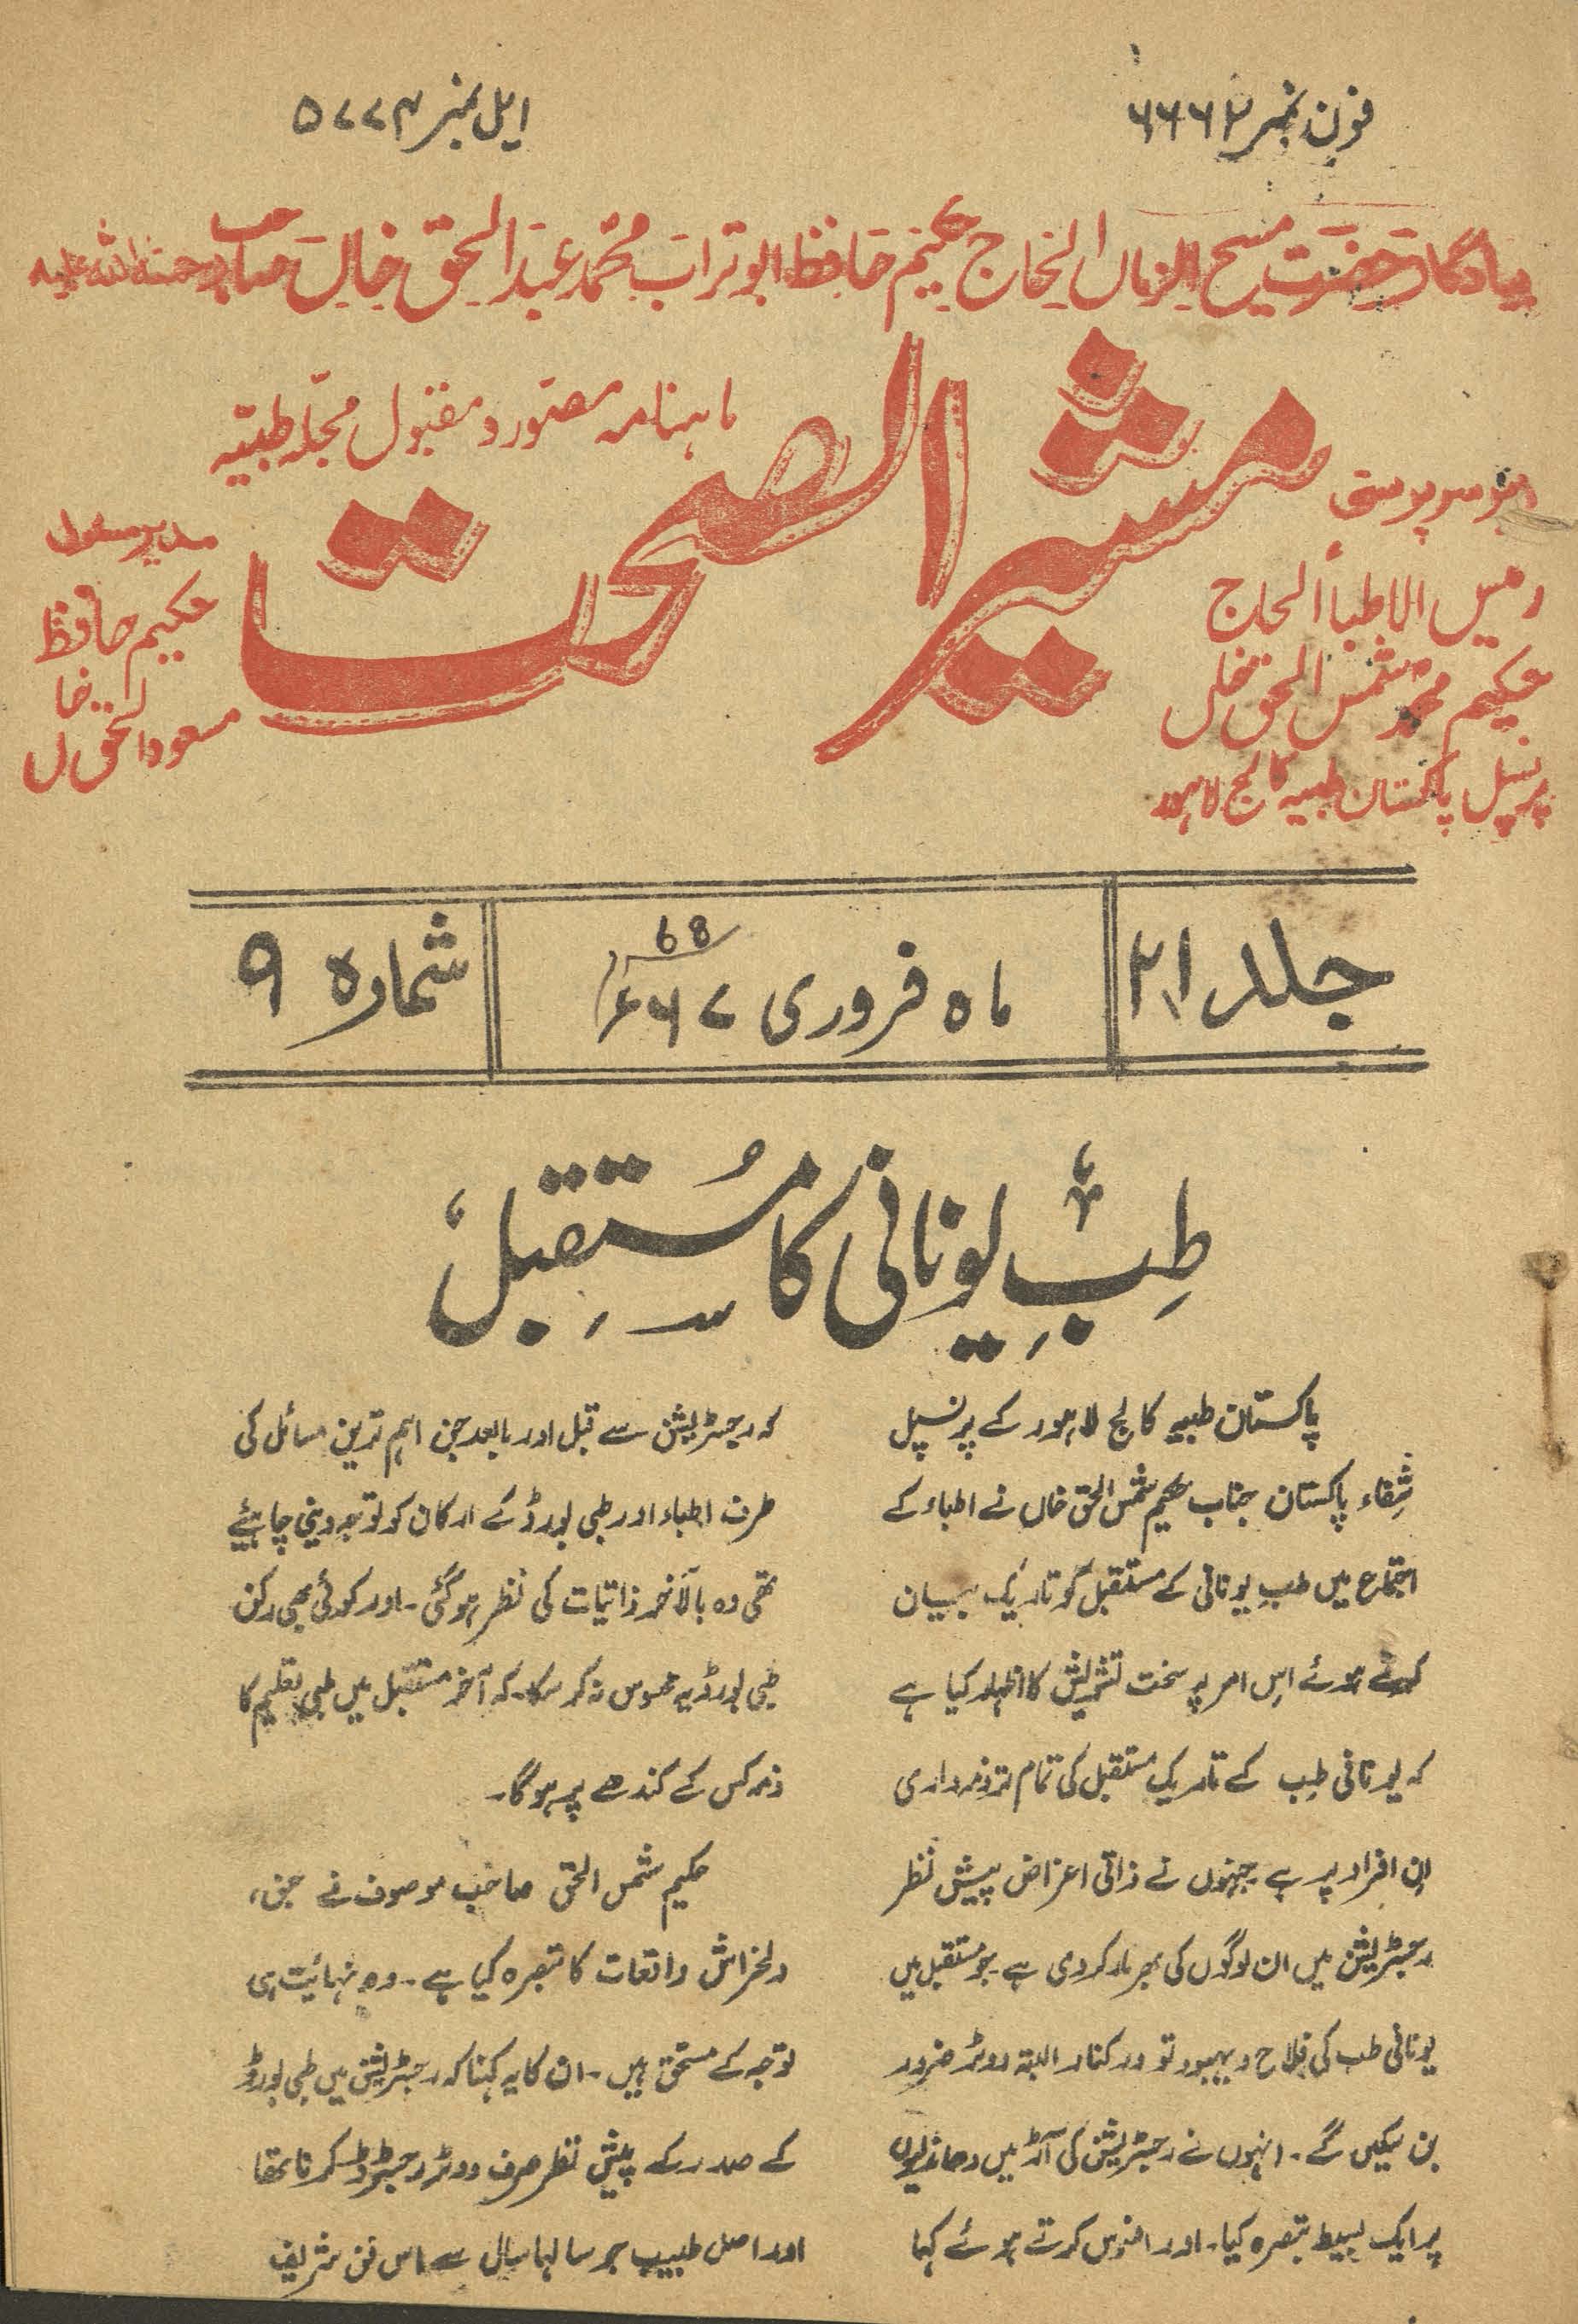 فون نمبر ۶۶۶۲
ایل نمبر ۵۷۷۴
یادگار حضرت مسیح الزماں الحاج حکیم حافظ ابو تراب محمد عبدالحق خاں صاحب رحمتہ اللہ علیہ
ماہنامہ مصور و مقبول مجلہ طبیّہ
مشیر الصحت
زیر سرپرستی
رئیس الاطباء الحاج
حکیم محمد شمس الحق خاں
پرنسپل پاکستان طبیہ کالج لاہور
مدیر مسئول
حکیم حافظ
مسعود الحق خاں
جلد ۲۱
ماہ فروری ۶۷ء
68
شمارہ ۹
طِبِّ یونانی کا مُستقبل
پاکستان طبیہ کالج لاہور کے پرنسپل
شفاء پاکستان جناب حکیم شمس الحق خاں نے اطباء کے
اجتماع میں طب یونانی کے مستقبل کو تاریک بیان
کرتے ہوئے اس امر پر سخت تشویش کا اظہار کیا ہے
کہ یونانی طب کے تاریک مستقبل کی تمام تر ذمہ داری
ان افراد پر ہے جنہوں نے ذاتی اغراض پیش نظر
رجسٹریشن میں ان لوگوں کی بھرمار کردی ہے جو مستقبل میں
یونانی طب کی فلاح و بہبود تو درکنار البتہ ووٹر ضرور
بن سکیں گے۔ انہوں نے رجسٹریشن کی آڑ میں دھاندلیوں
پر ایک بسیط تبصرہ کیا۔ اور افسوس کرتے ہوئے کہا
کہ رجسٹریشن سے قبل اور بابعد جن اہم ترین مسائل کی
طرف اطباء اور طبی بورڈ کے ارکان کو توجہ دینی چاہیئے
تھی وہ بالآخر ذاتیات کی نظر ہوگئی۔ اور کوئی بھی رکن
طبی بورڈ یہ محسوس نہ کر سکا۔ کہ آخر مستقبل میں طبی تعلیم کا
ذمہ کس کے کندھے پر ہوگا۔
حکیم شمس الحق صاحب موصوف نے جن،
دلخراش واقعات کا تبصرہ کیا ہے۔ وہ نہائیت ہی
توجہ کے مستحق ہیں۔ ان کا یہ کہنا کہ رجسٹریشن میں طبی بورڈ
کے صدر کے پیش نظر صرف ووٹر رجسٹرڈ کرنا تھا
اور اصل طبیب جو سالہا سال سے اس فن شریف